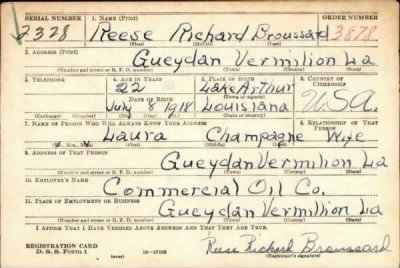 SERIAL NUMBER 1. NAME (Print) ORDER NUMBER
2328 Reese Richard Broussard 3878
(First) (Middle) (Last)
2. ADDRESS (Print)
Gueydan Vermilion La
(Number and street or R. F. D. number) (Town) (County) (State)
3. TELEPHONE 4. AGE IN YEARS 5. PLACE OF BIRTH 6. COUNTRY OF CITIZENSHIP
22 Lake Arthur
DATE OF BIRTH (Town or county)
July 8 1918 Louisiana U.S.A.
(Exchange) (Number) (Mo.) (Day) (Yr.) (State or country)
7. NAME OF PERSON WHO WILL ALWAYS KNOW YOUR ADDRESS 8. RELATIONSHIP OF THAT PERSON
Laura Champagne Wife
(First) (Middle) (Last)
9. ADDRESS OF THAT PERSON
Gueydan Vermilion La
(Number and street or R. F. D. number) (Town) (County) (State)
10. EMPLOYER'S NAME
Commercial Oil Co.
11. PLACE OF EMPLOYMENT OR BUSINESS
Gueydan Vermilion La
(Number and street or R. F. D. number) (Town) (County) (State)
I AFFIRM THAT I HAVE VERIFIED ABOVE ANSWERS AND THAT THEY ARE TRUE.
REGISTRATION CARD Reese Richard Broussard
D. S. S. Form 1 (over) (Registrant's signature)